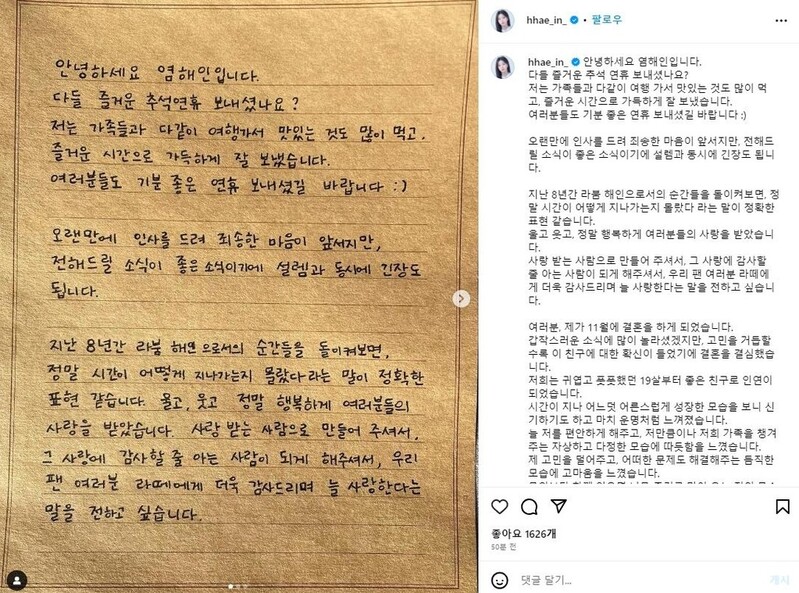 안녕하세요 염해인입니다.
다들 즐거운 추석연휴 보내셨나요?
저는 가족들과 다같이 여행가서 맛있는 것도 많이 먹고,
즐거운 시간으로 가득하게 잘 보냈습니다.
여러분들도 기분 좋은 연휴 보내셨길 바랍니다 :)
오랜만에 인사를 드려 죄송한 마음이 앞서지만,
전해드릴 소식이 좋은 소식이기에 설렘과 동시에 긴장도
됩니다.
지난 8년간 라붐 해인으로서의 순간들을 돌이켜보면,
정말 시간이 어떻게 지나가는지 몰랐다라는 말이 정확한
표현 같습니다. 울고, 웃고 정말 행복하게 여러분들의
사랑을 받았습니다. 사랑 받는 사람으로 만들어 주셔서,
그 사랑에 감사할 줄 아는 사람이 되게 해주셔서, 우리
팬 여러분 라떼에게 더욱 감사드리며 늘 사랑한다는
말을 전하고 싶습니다.
hhae_in_ • 팔로우
hhae_in_ 안녕하세요 염해인입니다.
다들 즐거운 추석 연휴 보내셨나요?
저는 가족들과 다같이 여행 가서 맛있는 것도 많이 먹
고, 즐거운 시간으로 가득하게 잘 보냈습니다.
여러분들도 기분 좋은 연휴 보내셨길 바랍니다 :)
오랜만에 인사를 드려 죄송한 마음이 앞서지만, 전해드
릴 소식이 좋은 소식이기에 설렘과 동시에 긴장도 됩니
다.
지난 8년간 라붐 해인으로서의 순간들을 돌이켜보면, 정
말 시간이 어떻게 지나가는지 몰랐다 라는 말이 정확한
표현 같습니다.
울고 웃고, 정말 행복하게 여러분들의 사랑을 받았습니다.
사랑 받는 사람으로 만들어 주셔서, 그 사랑에 감사할
줄 아는 사람이 되게 해주셔서, 우리 팬 여러분 라떼에
게 더욱 감사드리며 늘 사랑한다는 말을 전하고 싶습니
다.
여러분, 제가 11월에 결혼을 하게 되었습니다.
갑작스러운 소식에 많이 놀라셨겠지만, 고민을 거듭할
수록 이 친구에 대한 확신이 들었기에 결혼을 결심했습
니다.
저희는 귀엽고 풋풋했던 19살부터 좋은 친구로 인연이
되었습니다.
시간이 지나 어느덧 어른스럽게 성장한 모습을 보니 신
기하기도 하고 마치 운명처럼 느껴졌습니다.
늘 저를 편안하게 해주고, 저만큼이나 저희 가족을 챙겨
주는 자상하고 다정한 모습에 따뜻함을 느꼈습니다.
제 고민을 덜어주고, 어떠한 문제도 해결해주는 듬직한
모습에 고마움을 느꼈습니다.
좋아요 1626개
50분 전
댓글 달기...
게시